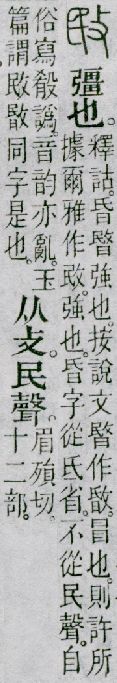 敃
彊也。
釋詁。昏暋強也。按說文暋作敯。冒也。則許所
據爾雅作敃。強也。昏字從氏省。不從民聲。自
俗寫殽譌。音韵亦亂。玉
篇謂敃敯同字是也。
从攴。民聲。
眉殞切。
十二部。